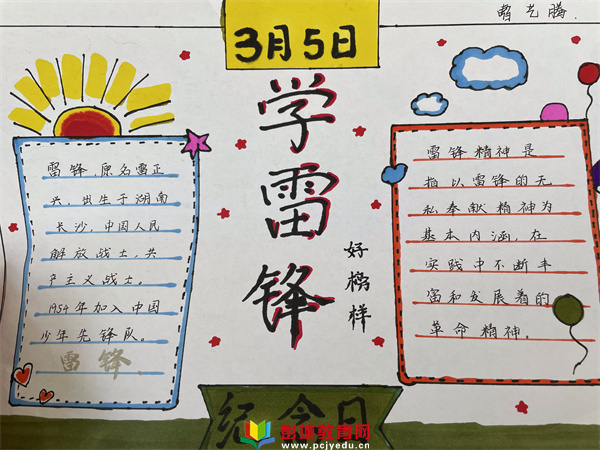 3月5日
学雷锋
好榜样
雷锋,原名雷正
兴,出生于湖南
长沙,中国人民
解放战士,共
产主义战士。
1954年加入中国
少年先锋队。
雷锋
雷锋精神是
指以雷锋的无
私奉献精神为
基本内涵,在
实践中不断丰
富和发展着的
革命精神。
纪念日
彭雄教育网
www.pcjyedu.cn